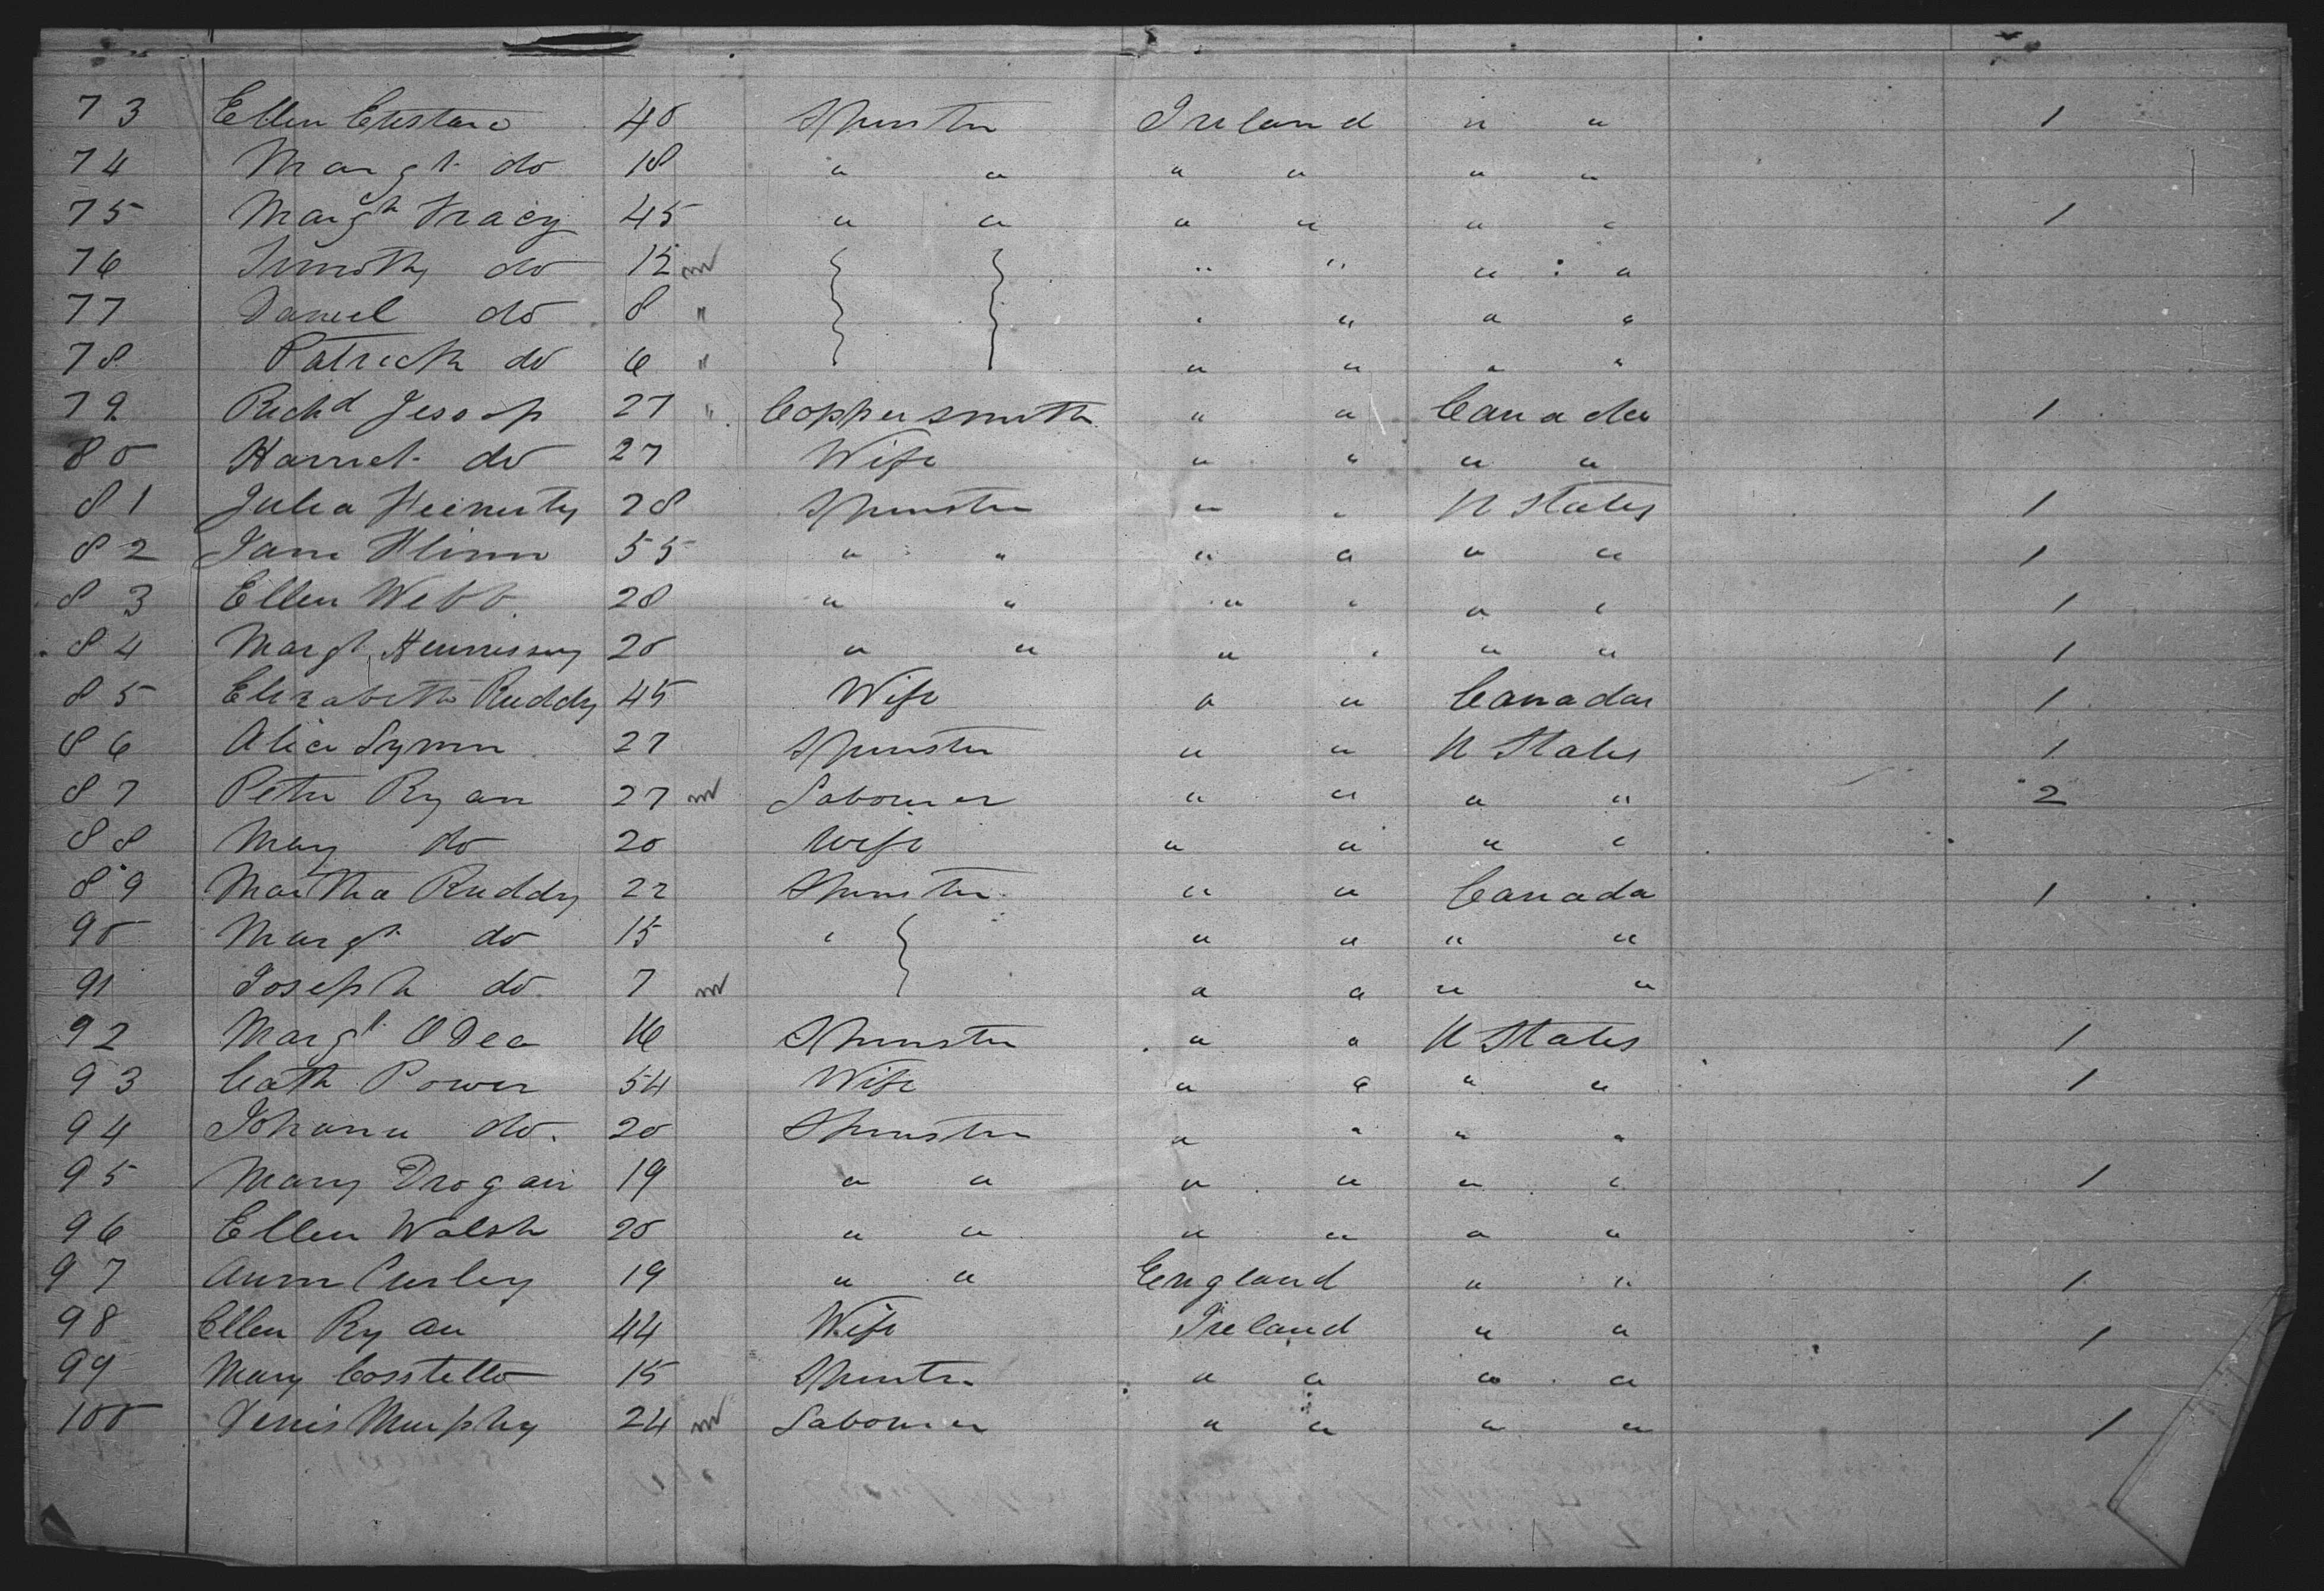 73 Ellen 40 Spinster Ireland " " 1
74 Margt do 18 " " " " " "
75 Margt Tracy 45 " " " " " " 1
76 Timothy do 12 m " " " "
77 Daniel do 8 " " " " "
78 Patrick do 6 " " " " "
79 Richd Jessop 27 " Coppersmith " " Canada 1
80 Harriet do 27 Wife " " " "
81 Julia 28 Spinster " " U States 1
82 Jane Flinn 55 " " " " " " 1
83 Ellen Webb 28 " " " " " " 1
84 Margt Hennessey 20 " " " " " " 1
85 Elizabeth Ruddy 45 Wife " " Canada 1
86 Alice 27 Spinster " " U States 1
87 Peter Ryan 27 m Labourer " " " " 2
88 Mary do 20 Wife " " " "
89 Martha Ruddy 22 Spinster " " Canada 1
90 Margt do 15 " " " " "
91 Joseph do 7 m " " " "
92 Margt O Dea 16 Spinster " " U States 1
93 Cath Power 54 Wife " " " " 1
94 Johana do. 20 Spinster " " " "
95 Mary 19 " " " " " " 1
96 Ellen Walsh 20 " " " " " "
97 Ann Curley 19 " " England " " 1
98 Ellen Ryan 44 Wife Ireland " " 1
99 Mary Costello 15 Spinster " " " "
100 Denis Murphy 24 m Labourer " " " " 1